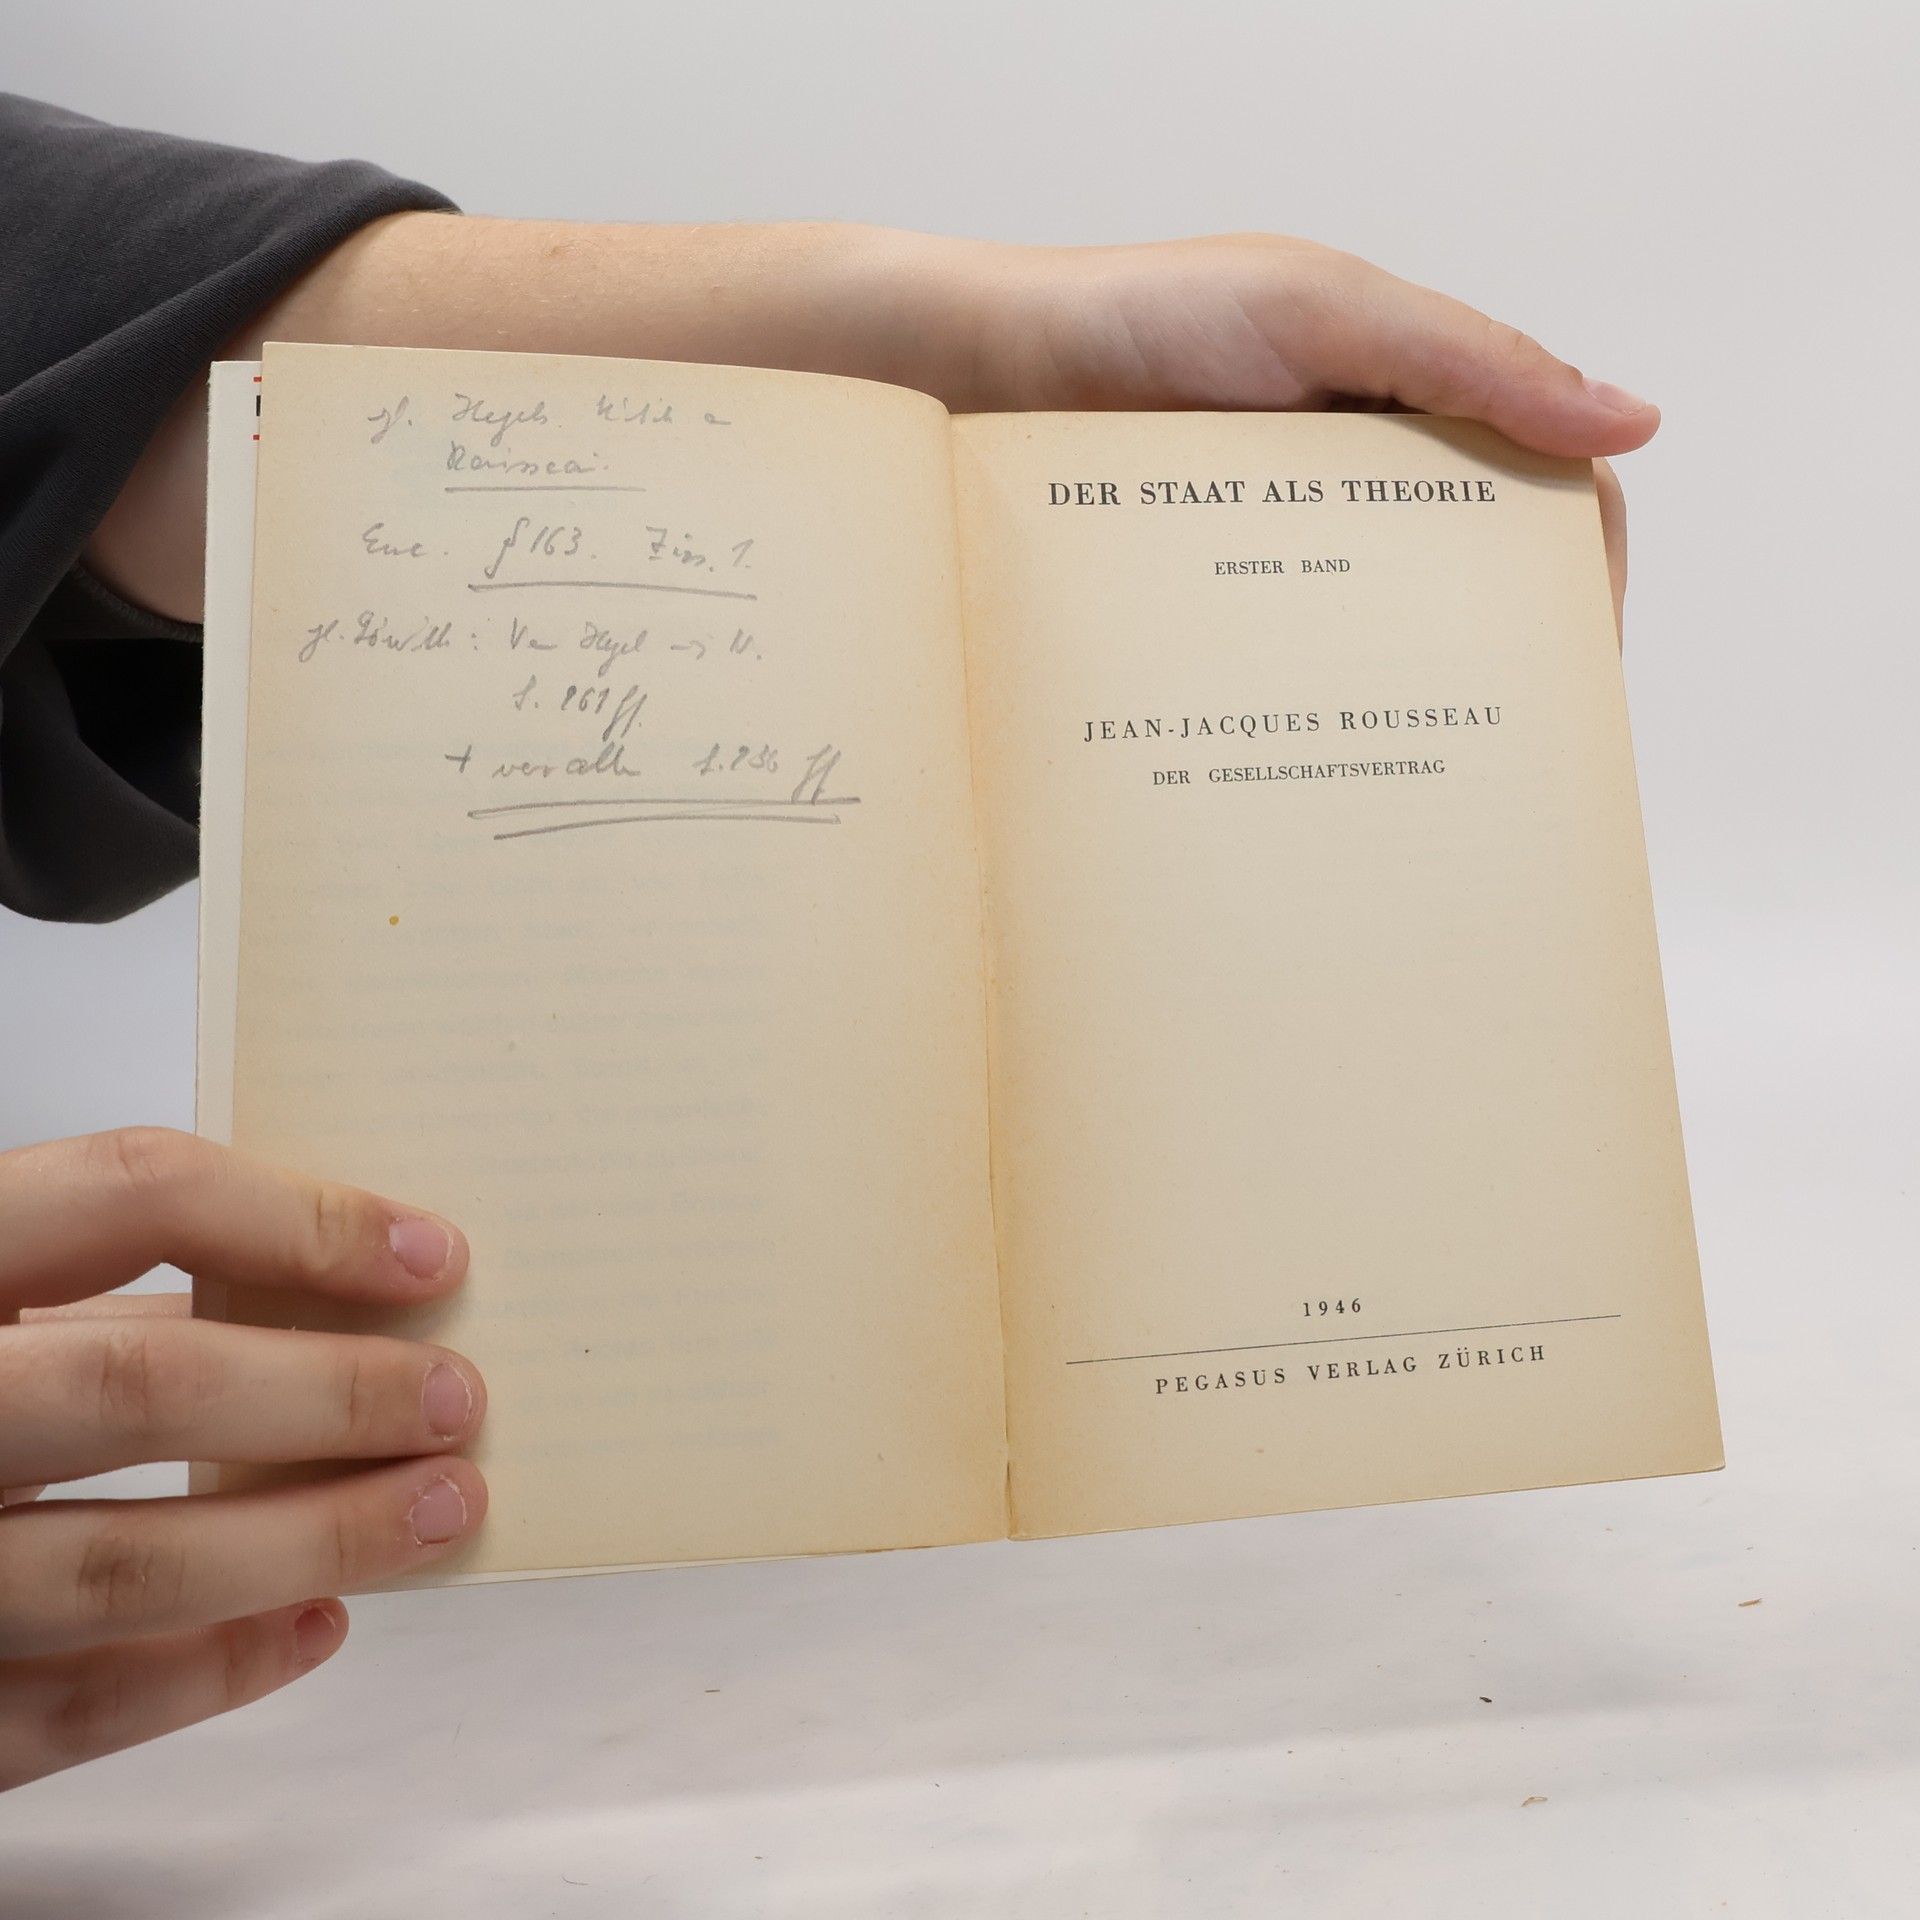 vgl. Hegels Kritik an
Rousseau.
Enc. § 163. Zus. 1.
vgl. Löwith: Von Hegel → N.
S. 261 ff.
+ vor allem S. 236 ff
DER STAAT ALS THEORIE
ERSTER BAND
JEAN-JACQUES ROUSSEAU
DER GESELLSCHAFTSVERTRAG
1946
PEGASUS VERLAG ZÜRICH